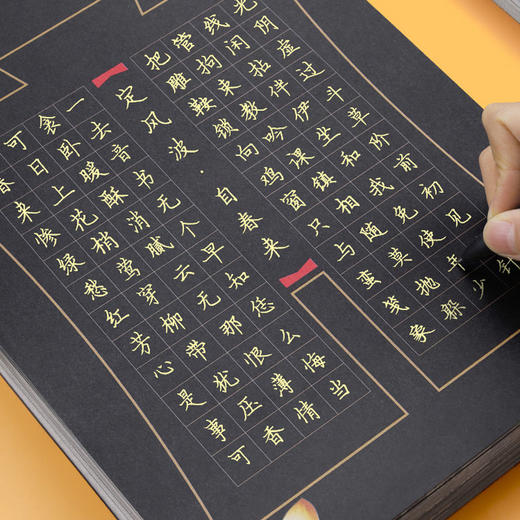 春来惨绿愁红芳心是事可
可日上花梢莺穿柳带犹压香
衾卧暖酥消腻云无那恨薄情
一去音书无个早知恁么悔当
定风波·自春来
把雕鞍锁向鸡窗只与蛮笺象
管拘束教吟课镇相随莫抛躲
线闲拈伴伊坐和我免使年少
光阴虚过斗草阶前初见